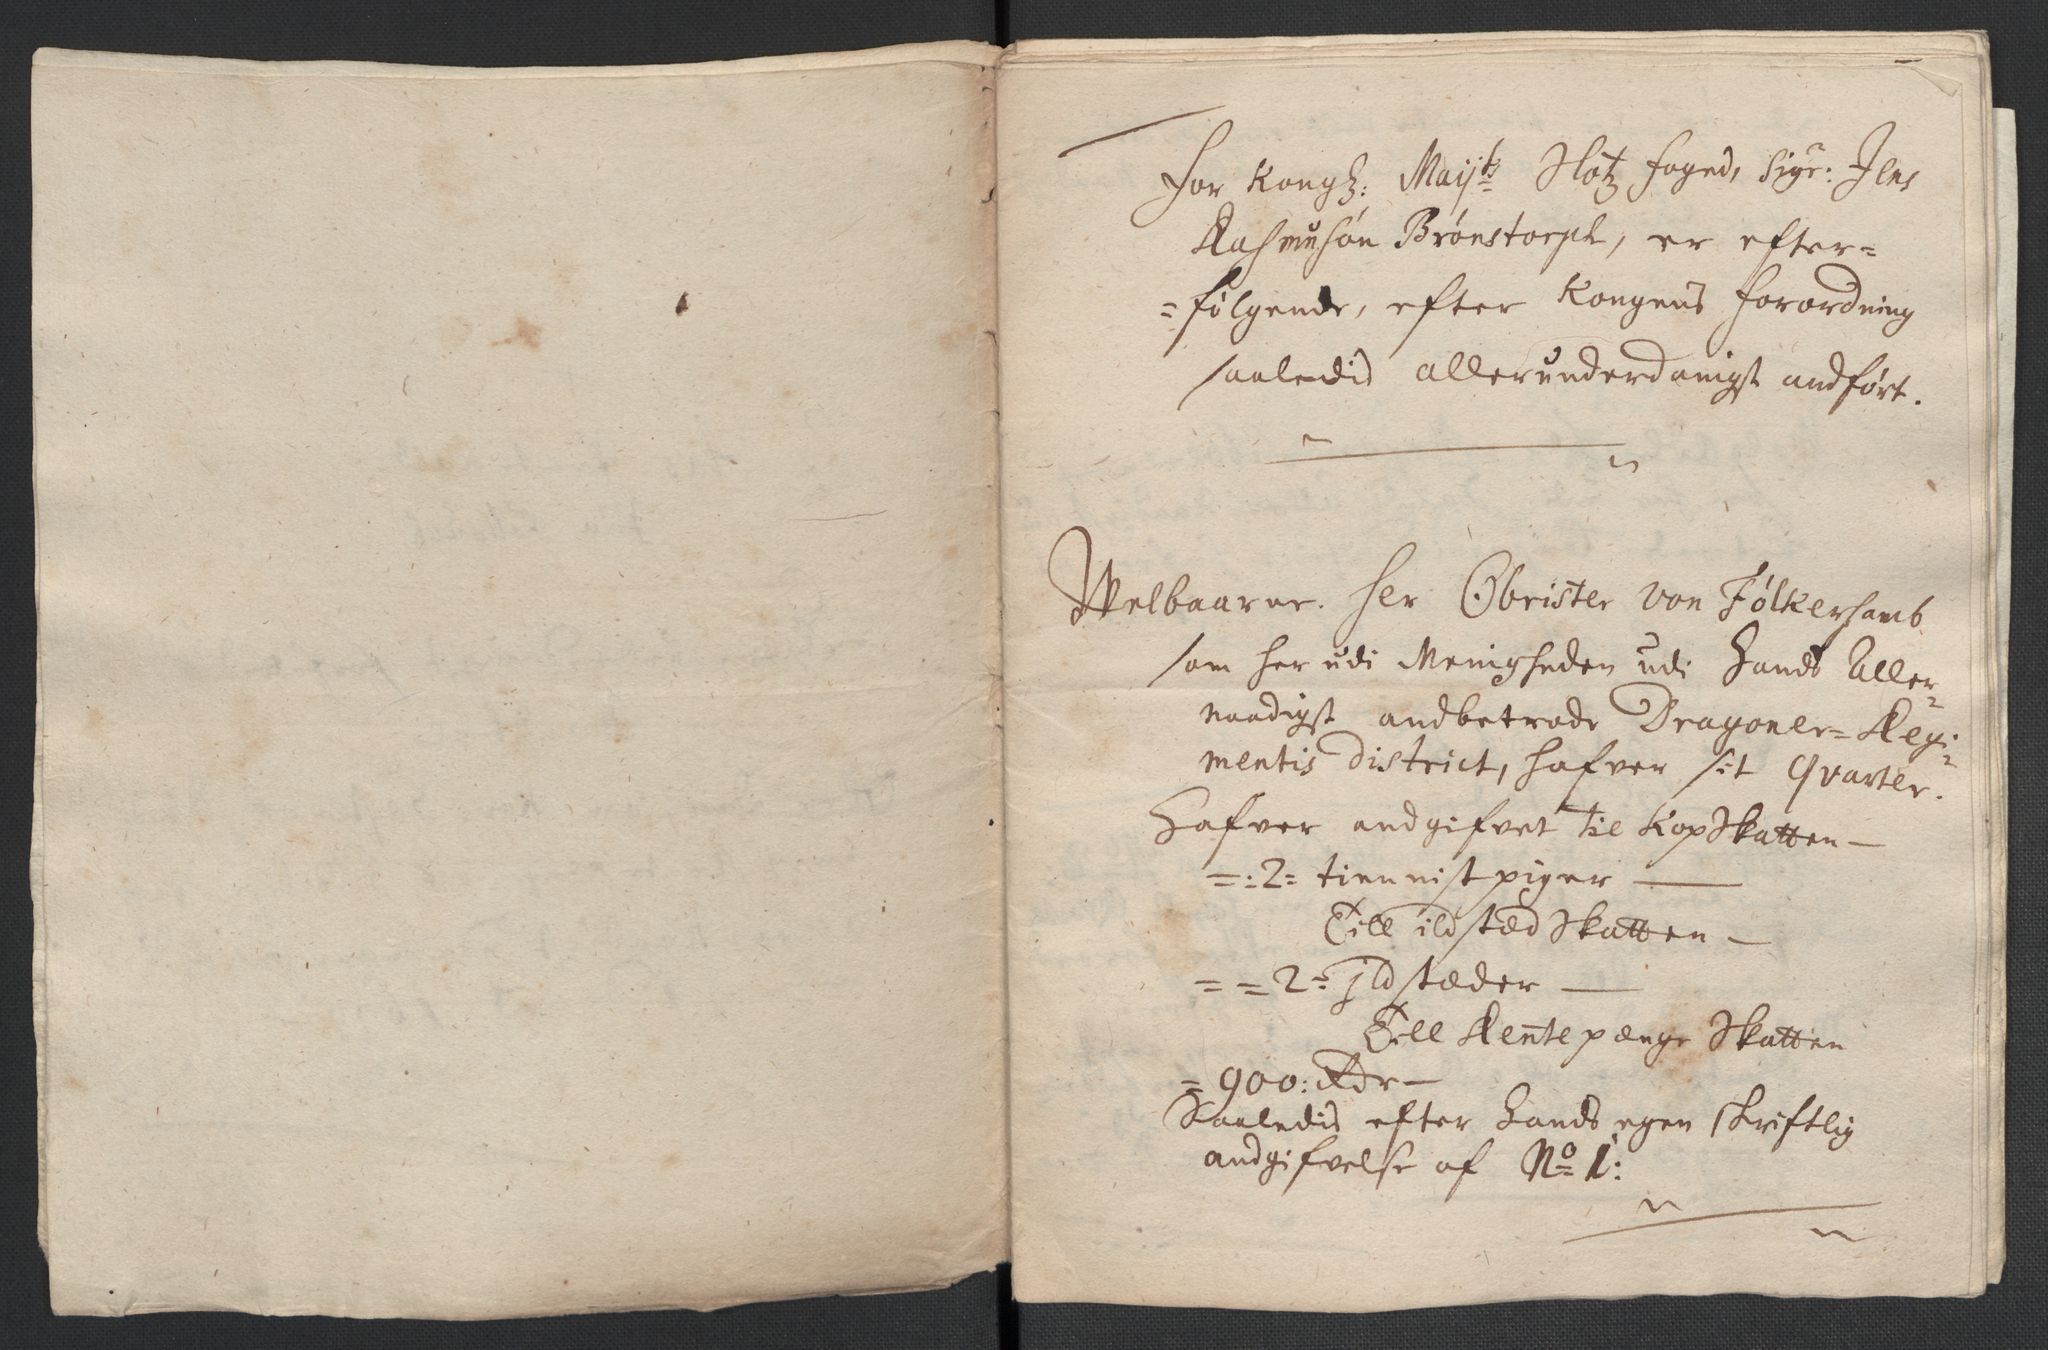 For Kongl: Maij:ts Slotz foged, Sigr: Jens
Rasmusøn Brønstorph, er efter=
=følgende, efter Kongens forordning
saaledis allerunderdanigst andført.
Welbaarne Her Obrister von Fölkersamb
som her udi Menigheden udi Hands Aller=
naadigst andbetrode Dragoner=Regi=
mentis District, hafver sit Qvarter.
Hafver andgifvet til KopSkatten —
=:2= tiennistpiger —
Till ildstæd Skatten —
= = 2= Jldstæder —
Till Rentepænge Skatten
= 900: Rdr —
Saaledis efter Hands egen skriftlig
andgifvelse af No 1: